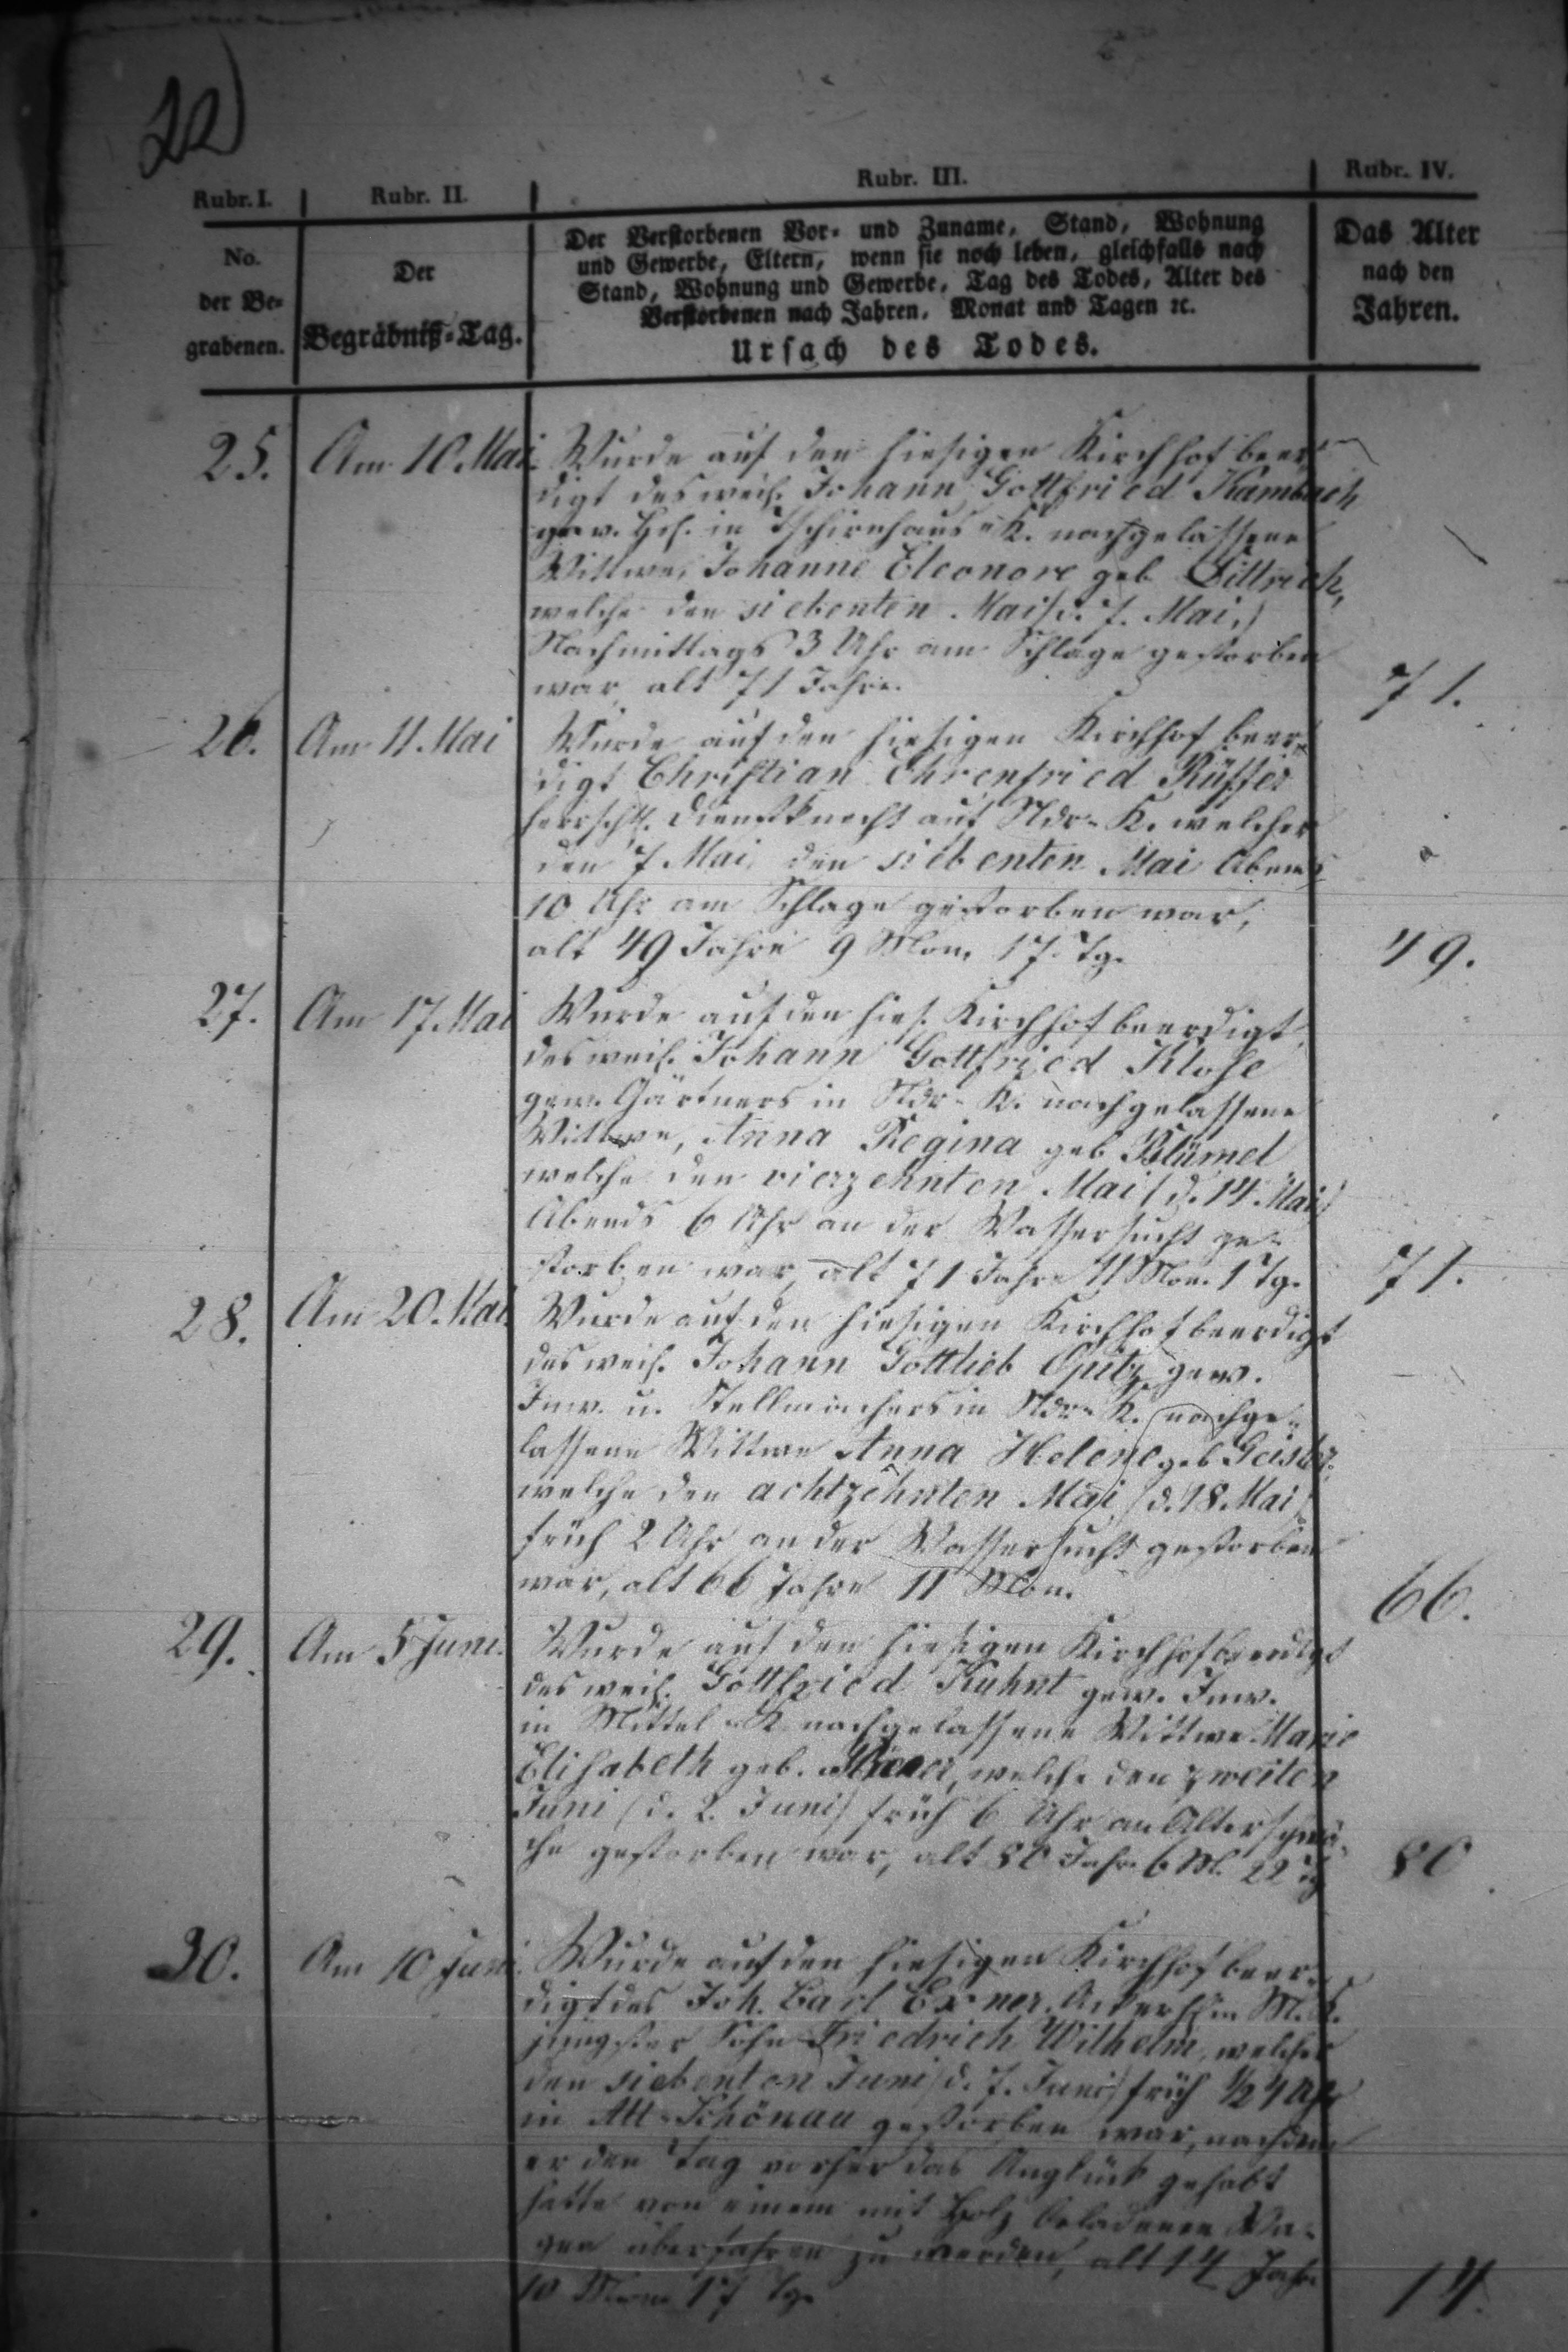 22)
Rubr. I. Rubr. II. Rubr. III. Rubr. IV.
No. der Be-grabenen.
Der Begräbniß-Tag.
Der Verstorbenen Vor- und Zuname, Stand, Wohnung
und Gewerbe, Eltern, wenn sie noch leben, gleichfalls nach
Stand, Wohnung und Gewerbe, Tag des Todes, Alter des
Verstorbenen nach Jahren, Monat und Tagen ꝛc.
Ursach des Todes.
Das Alter
nach den
Jahren.
25. Am 10. Mai. Wurde auf den hiesigen Kirchhof beer-
digt des weil. Johann Gottfried Kambach
gew. in Tschirnhaus-K. nachgelassene
Wittwe, Johanne Eleonore geb. Dittrich,
welche den siebenten Mai (d. 7. Mai,)
Nachmittags 3 Uhr am Schlage gestorben
war, alt 71 Jahre. 71.
26. Am 11. Mai Wurde auf den hiesigen Kirchhof beer-
digt Christian Ehrenfried Rüffer
herrschtl. Dienstknecht auf Ndr-K. welcher
den 7 Mai, den siebenten Mai Abends
10 Uhr am Schlage gestorben war,
alt 49 Jahre 9 Mon. 17 Tg. 49.
27. Am 17. Mai Wurde auf den hies. Kirchhof beerdigt
des weil. Johann Gottfried Klose
gew. Gärtners in Ndr-K. nachgelassene
Wittwe, Anna Regina geb Blümel
welche den vierzehnten Mai (d. 14. Mai)
Abends 6 Uhr an der Wassersucht ge-
storben war, alt 71 Jahre 11 Mon. 1 Tg. 71.
28. Am 20. Mai. Wurde auf den hiesigen Kirchhof beerdigt
des weil. Johann Gottlieb Opitz gew.
Inw. u. Stellmachers in Ndr-K. nachge-
lassene Wittwe Anna Helene geb
welche den achtzehnten Mai (d. 18. Mai)
früh 2 Uhr an der Wassersucht gestorben
war, alt 66 Jahre 11 Mon. 66.
29. Am 5 Juni. Wurde auf den hiesigen Kirchhof beerdigt
des weil. Gottfried Kuhnt gew. Inw.
in Mittel-K nachgelassene Wittwe Marie
Elisabeth geb. welche den zweiten
Juni (d. 2. Juni) früh 6 Uhr an Altersschwä-
che gestorben war, alt 80 Jahr 6 M. 22 Tg 80
30. Am 10 Juni. Wurde auf den hiesigen Kirchhof beer-
digt des Joh. Carl Exner, in M.K.
jüngster Sohn Friedrich Wilhelm, welcher
den siebenten Juni (d. 7. Juni) früh Uhr
in Alt-Schönau gestorben war, nachdem
er den Tag vorher das Unglück gehabt
hatte von einem mit Holz beladenen Wa-
gen überfahren zu werden, alt 14 Jahr
10 Mon. 17 Tg. 14.